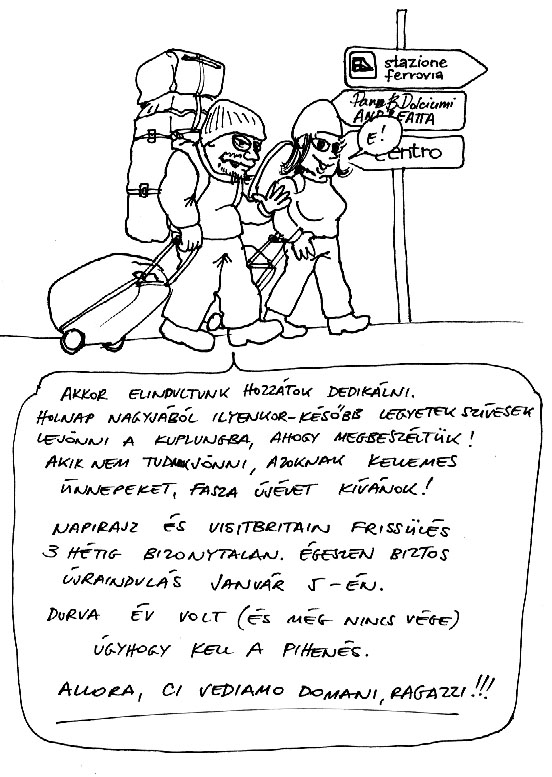 stazione
ferrovia
Pane & Dolciumi
ANDREATTA
E!
Centro
AKKOR ELINDULTUNK HOZZÁTOK DEDIKÁLNI.
HOLNAP NAGYJÁBÓL ILYENKOR-KÉSŐBB LEGYETEK SZÍVESEK
LEJÖNNI A KUPLUNGBA, AHOGY MEGBESZÉLTÜK!
AKIK NEM TUDNAK JÖNNI, AZOKNAK KELLEMES
ÜNNEPEKET, FASZA ÚJÉVET KÍVÁNOK!
NAPIRAJZ ÉS VISITBRITAIN FRISSÜLÉS
3 HÉTIG BIZONYTALAN. EGÉSZEN BIZTOS
ÚJRAINDULÁS JANUÁR 5-ÉN.
DURVA ÉV VOLT (ÉS MÉG NINCS VÉGE)
ÚGYHOGY KELL A PIHENÉS.
ALLORA, CI VEDIAMO DOMANI, RAGAZZI!!!